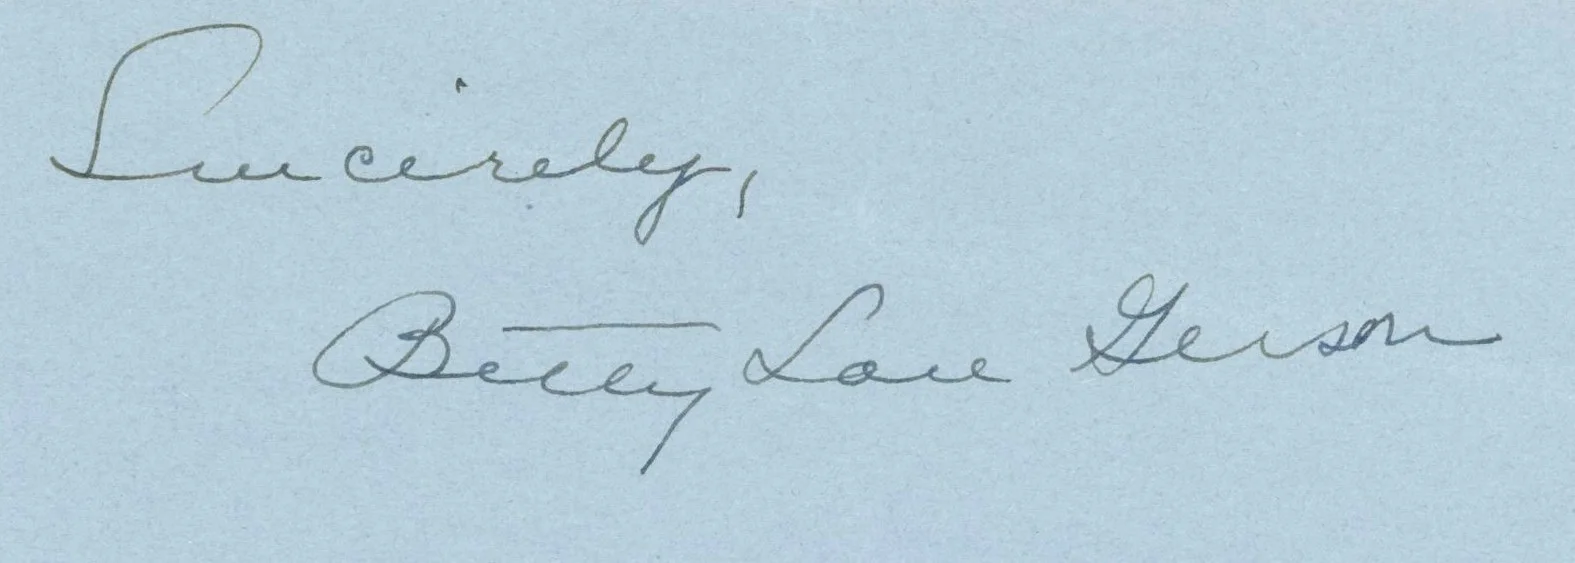 Sincerely,
Betty Lou Gerson